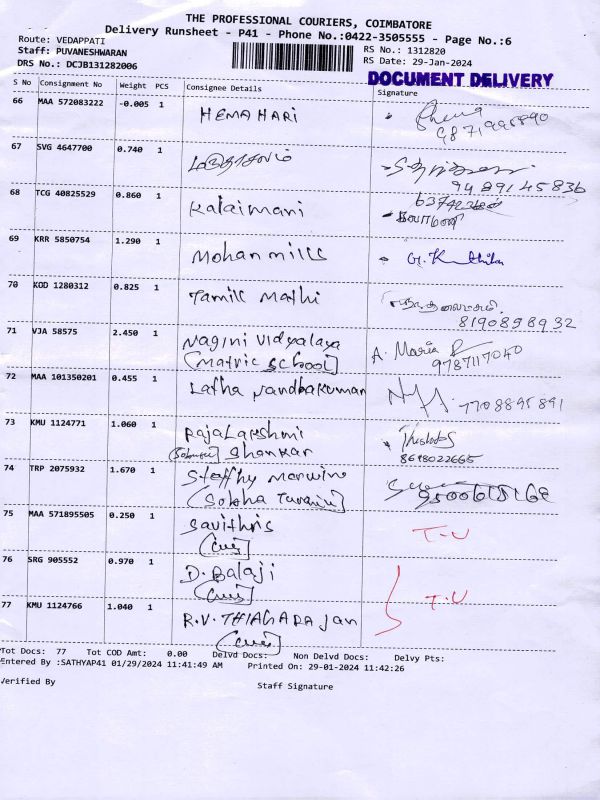 THE PROFESSIONAL COURIERS, COIMBATORE
Delivery Runsheet - P41 - Phone No.:0422-3505555 - Page No.:6
Route: VEDAPPATI
RS No.: 1312820
Staff: PUVANESHWARAN
RS Date: 29-Jan-2024
DRS No.: DCJB131282006
DOCUMENT DELIVERY
S No Consignment No Weight PCS Consignee Details Signature
66 MAA 572083222 -0.005 1 HEMA HARI
67 SVG 4647700 0.740 1 மருதாசலம்
9489145836
68 TCG 40825529 0.860 1 Kalaimani
69 KRR 5850754 1.290 1 Mohan mills
70 KOD 1280312 0.825 1 Tamil Mathi
8190898932
71 VJA 58575 2.450 1 Nagini Vidyalaya A. Maria
(Matric School) 9787117040
72 MAA 101350201 0.455 1 Latha Nandhakumar 7708895891
73 KMU 1124771 1.060 1 Rajalakshmi
Shankar 8618022665
74 TRP 2075932 1.670 1
75 MAA 571895505 0.250 1 Savithris T.U
76 SRG 905552 0.970 1 D. Balaji
77 KMU 1124766 1.040 1 R.V. THIAGARAJan T.U
Tot Docs: 77 Tot COD Amt: 0.00 Delvd Docs: Non Delvd Docs: Delvy Pts:
Entered By :SATHYAP41 01/29/2024 11:41:49 AM Printed On: 29-01-2024 11:42:26
Verified By Staff Signature